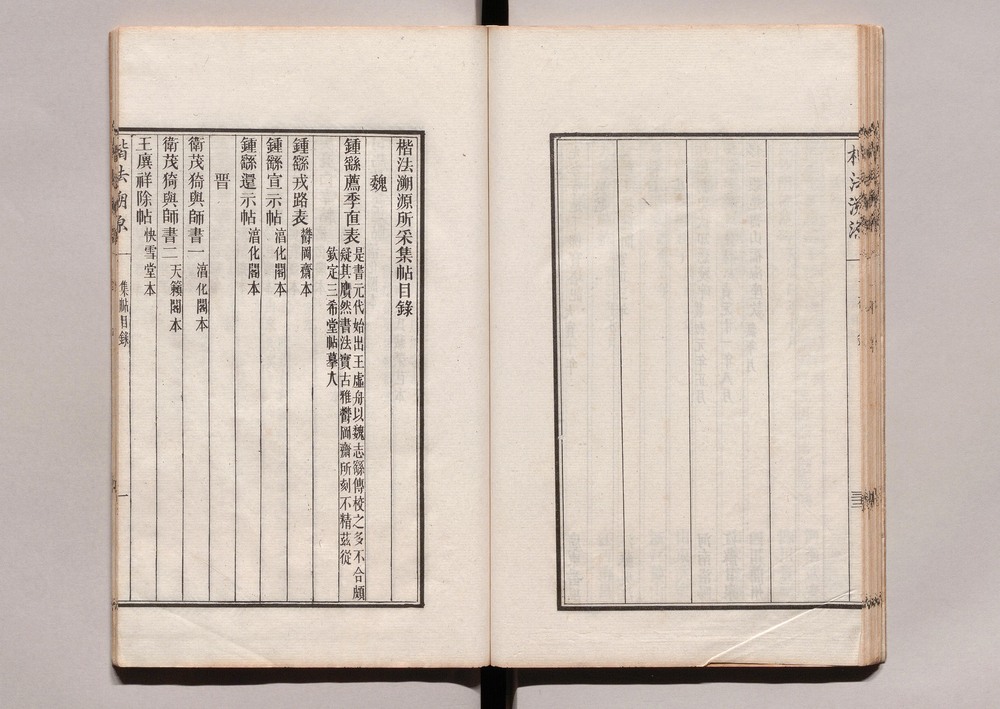 楷法溯源所采集帖目錄
魏
鍾繇薦季直表
是書元代始出王虛舟以魏志繇傳校之多不合頗
疑其贗然書法實古雅鬱岡齋所刻不精茲從
欽定三希堂帖摹入
鍾繇戎路表 鬱岡齋本
鍾繇宣示帖 淳化閣本
鍾繇還示帖 淳化閣本
晉
衛茂猗與師書一 淳化閣本
衛茂猗與師書二 天籟閣本
王廙祥除帖 快雪堂本
楷法溯原 集帖目錄 一